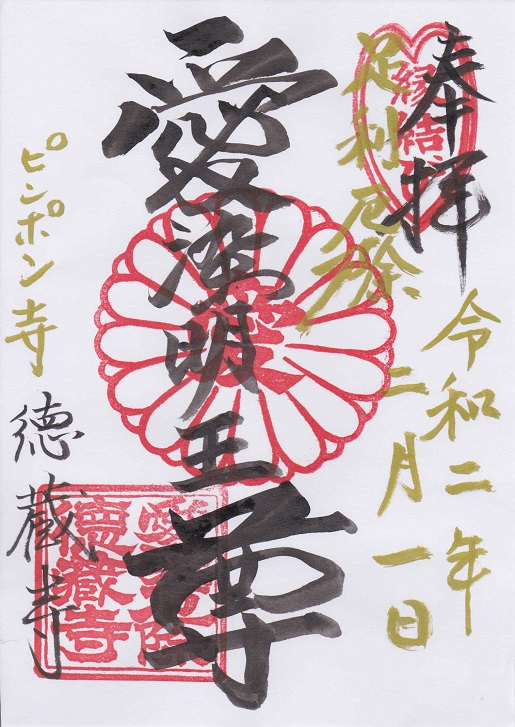 奉拝
足利厄除
令和二年
二月一日
愛染明王尊
ピンポン寺
徳蔵寺
縁結
徳蔵寺